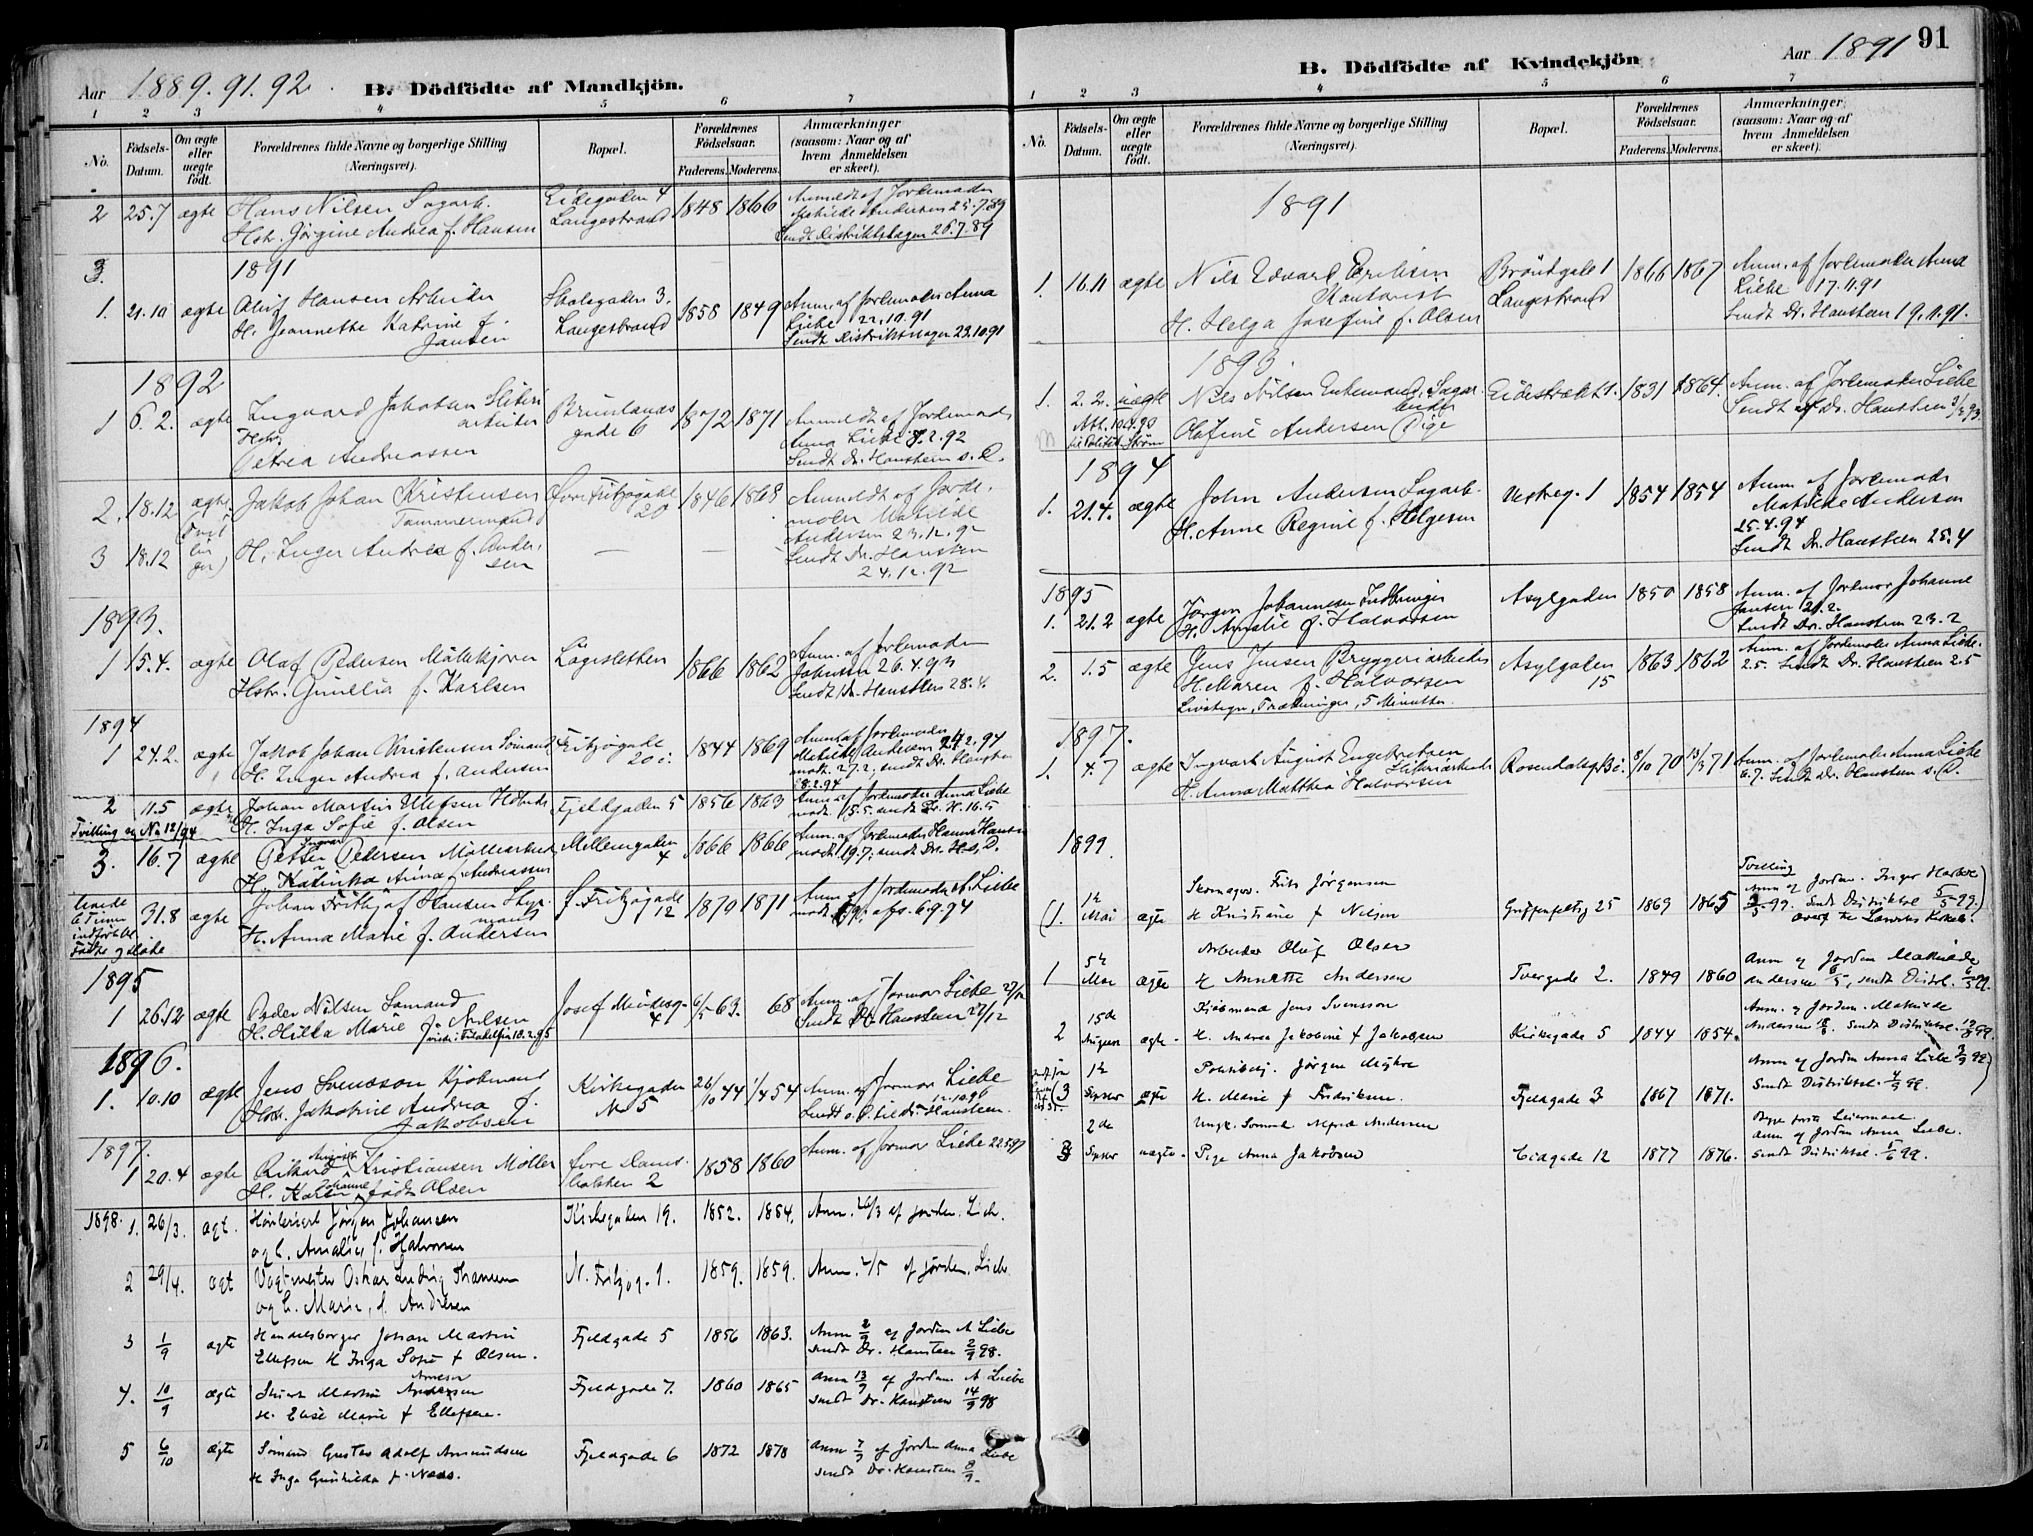 Aar 1889.91.92. B. Dödfödte af Mandkjön.
1 2 3 4 5 6 7
No. Födsels-Datum. Om ægte eller uægte födt. Forældrenes fulde Navne og borgerlige Stilling (Næringsvei). Bopæl. Forældrenes Födselsaar. Faderens. Moderens. Anmærkninger (saasom: Naar og af hvem Anmeldelsen er skeet).
2 25.7 ægte Hans Nilsen Sagarb. Eidegaden 4 1848 1866 Anmeldt af Jordemoder
Hstr. Jørgine Andrea f. Hansen Langestrand Matilde Andersen 25.7.89
Sendt Distriktslægen 26.7.89
3.
1891
1. 21.10 ægte Oluf Hansen Arbeider Skolegaden 3. 1858 1849 Anm. af Jordemoder Anna
H. Jeannette Katrine f. Langestrand Liebe 22.10.91
Jansen Sendt Distriktslægen 23.10.91
1892
1 6.2. ægte Ingvard Jakobsen Sliberi Brunlanæs 1872 1871 Anmeldt af Jordemoder
arbeider gade 6 Anna Liebe 7.2.92
Hstr. Petrea Andreassen Sendt Dr. Hansteen s. D.
2. 18.12 ægte Jakob Johan Kristensen Øvre Fritzøgade 1846 1868 Anmeldt af Jorde-
(Tvil Tømmermand 20 moder Matilde
lin Andersen 23.12.92
3 18.12 ger) H. Inger Andrea f. Ander- — — Sendt Dr. Hansteen
sen 24.12.92
1893.
1 15.4. ægte Olaf Pedersen Møllekjører Lågisletten 1866 1862 Anm. af Jordemoder
Hstr. Gunelia f. Karlsen Johnsen 26.4.93
Sendt Dr. Hansteen 28.4.
1894
1 24.2. ægte Jakob Johan Kristensen Sömand Fritzøgade 1844 1869 Anm. af Jordemoder
H. Inger Andrea f. Andersen 20 Matilde Andersen 24.2.94
modt. 27.2, sendt Dr. Hansteen
28.2.94
2 11.5 ægte Johan Martin Ellefsen Fjeldgaden 5 1856 1863 Anm. af Jordemoder Anna Liebe
Tvilling m No 12/94 H. Inga Sofie f. Olsen modt. 15.5. sendt Dr. H. 16.5
3. 16.7 ægte Petter Ingvar Pedersen Møllearbeid. Mellemgaden 4 1866 1866 Anm. af Jordemoder Hanna Hansen
H. Katinka Anna f. Andreassen modt. 19.7; sendt Dr. H. s. D.
31.8 ægte Johan Fritjof Hansen Styr- S. Fritzøgade 1870 1871 Anm. af Jordemoder A. Liebe
mand 12
H. Anna Marie f. Andersen
1895
1 26.12 ægte Peder Nilsen Sømand Josef Müllersg. 6/5 63. 68 Anm. af Jormor Liebe 27/12
H. Hilda Marie f. Nilsen 4 Sendt Dr. Hansteen 27/12
1896.
1. 10.10 ægte Jens Svensson Kjøbmand Kirkegaden 26/10 44 1/4 54 Anm. af Jormor Liebe
Hstr. Jakobine Andrea f. No 5 12.10.96
Jakobsen Sendt s. D. til Dr. Hansteen.
1897.
1 20.4 ægte Rikard August Kristiansen Møller Øvre Dams- 1858 1860 Anm. af Jormor Liebe 22.5.97
H. Karen Johanne født Olsen bakken 2
1898. 1. 26/3. ægt. Jørgen Johansen Kirkegaden 19. 1852. 1854. Anm. 26/3 af jordem. Lieb.
og h. Amalie f. Halvorsen
2 29/4. ægt Vagtmester Oskar Ludvig Thomsen N. Fritzög. 1. 1859. 1859. Anm. 2/5 af jordem. Lieb.
og h. Marie, f. Andresen
3 1/9 ægte Handelsborger Johan Martin Fjeldgade 5 1856 1863. Anm 2/9 af Jordem A Liebe
Ellefsen H Inga Sofie f Olsen. sendt Dr. Hansteen 2/9 98.
4. 10/9 ægte Martin Andersen Arnesen Fjeldgade 7. 1860 1865 Anm 13/9 af Jordem A Liebe
H. Elise Marie f Ellefsen. sendt Dr. Hansteen 14/9 98
5 6/10 ægte Sömand Gustav Adolf Amundsen Fjeldgade 6 1872 1878 Anm 7/9 af Jordem Anna Liebe
H Inga Gunhilda f. Næss. sendt Dr. Hansteen 8/9.
B. Dödfödte af Kvindekjön Aar 1891 91
1 2 3 4 5 6 7
No. Födsels-Datum. Om ægte eller uægte födt. Forældrenes fulde Navne og borgerlige Stilling (Næringsvei). Bopæl. Forældrenes Födselsaar. Faderens. Moderens. Anmærkninger (saasom: Naar og af hvem Anmeldelsen er skeet).
1891
1. 16.11 ægte Nils Edvard Eriksen Bröndgade 1 1866 1867 Anm. af Jordemoder Anna
Kontorist Langestrand Liebe 17.11.91
H. Helga Josefine f. Olsen Sendt Dr. Hansteen 19.11.91.
1893.
1. 2.2. uægte Nils Nilsen Enkemand, Sagar- Eidestrækt 1. 1831 1864. Anm. af Jordemoder Liebe
beider Sendt af Dr. Hansteen 3/2 93
Olafine Andersen Pige
1894
1. 21.4. ægte John Andersen Sagarb. Vestreg. 1 1854 1854 Anm. af Jordemoder
H. Anne Regine f. Helgesen Matilde Andersen
25.4.94
Sendt Dr. Hansteen 25.4
1895
1. 21.2 ægte Jørgen Johannesen Asylgaden 1850 1858 Anm. af Jordmor Johanne
H. Amalie f. Halvorsen Jansen 21.2.
Sendt Dr. Hansteen 23.2
2. 1.5 ægte Jens Jensen Bryggeriarbeider Asylgaden 1863 1862 Anm. af Jordemoder Anna Liebe.
H. Maren f. Halvorsen 15 2.5. Sendt Dr. Hansteen 2.5
Livstegn, Trækninger, 5 Minutter.
1897.
1. 4.7 ægte Ingvart August Engebretsen Rosendalsg. 8/10 70 13/3 71 Anm. af Jordemoder Anna Liebe
Sliberiarbeider 6.7. Sendt Dr. Hansteen s. D.
H. Anna Matthea Halvorsen
1899.
Tvilling
(1. 1ste Mai ægte Skomagers. Frits Jörgensen Griffenfeltsg 25 1869 1865 Anm af Jordem. Inger
H Kristiane f Nilsen 3/5 99. Sendt Distriktsl. 5/5 99.
1 5te Mai ægte Arbeider Oluf Olsen Tvergade 2. 1849 1860 Anm af Jordem Mathilde
H Annette Andersen Andersen 6/5, sendt Distrl. 6/5 99.
2 15de August ægte. Kjöbmand Jens Svensson Kirkegade 5 1844 1854. Anm. af Jordem. Mathilde
H. Andrea Jakobine f Jakobsen Andersen. sendt Distriktsl. 99.
(3 1ste Septbr ægte Politibetj. Jörgen Fjeldgade 3 1867 1871. Anm af Jordem Anna Liebe 3/9 99)
H. Marie f Fredriksen. Sendt Distriktsl. 4/9 99.
3 2de Septbr uægte. Ungk. Sömand Alfred Andersen Eidgade 12 1877 1876. Begge første Leiermaal.
Pige Anna Jakobsen Anm af Jordem Anna Liebe.
sendt Distriktsl. 5/9 99.